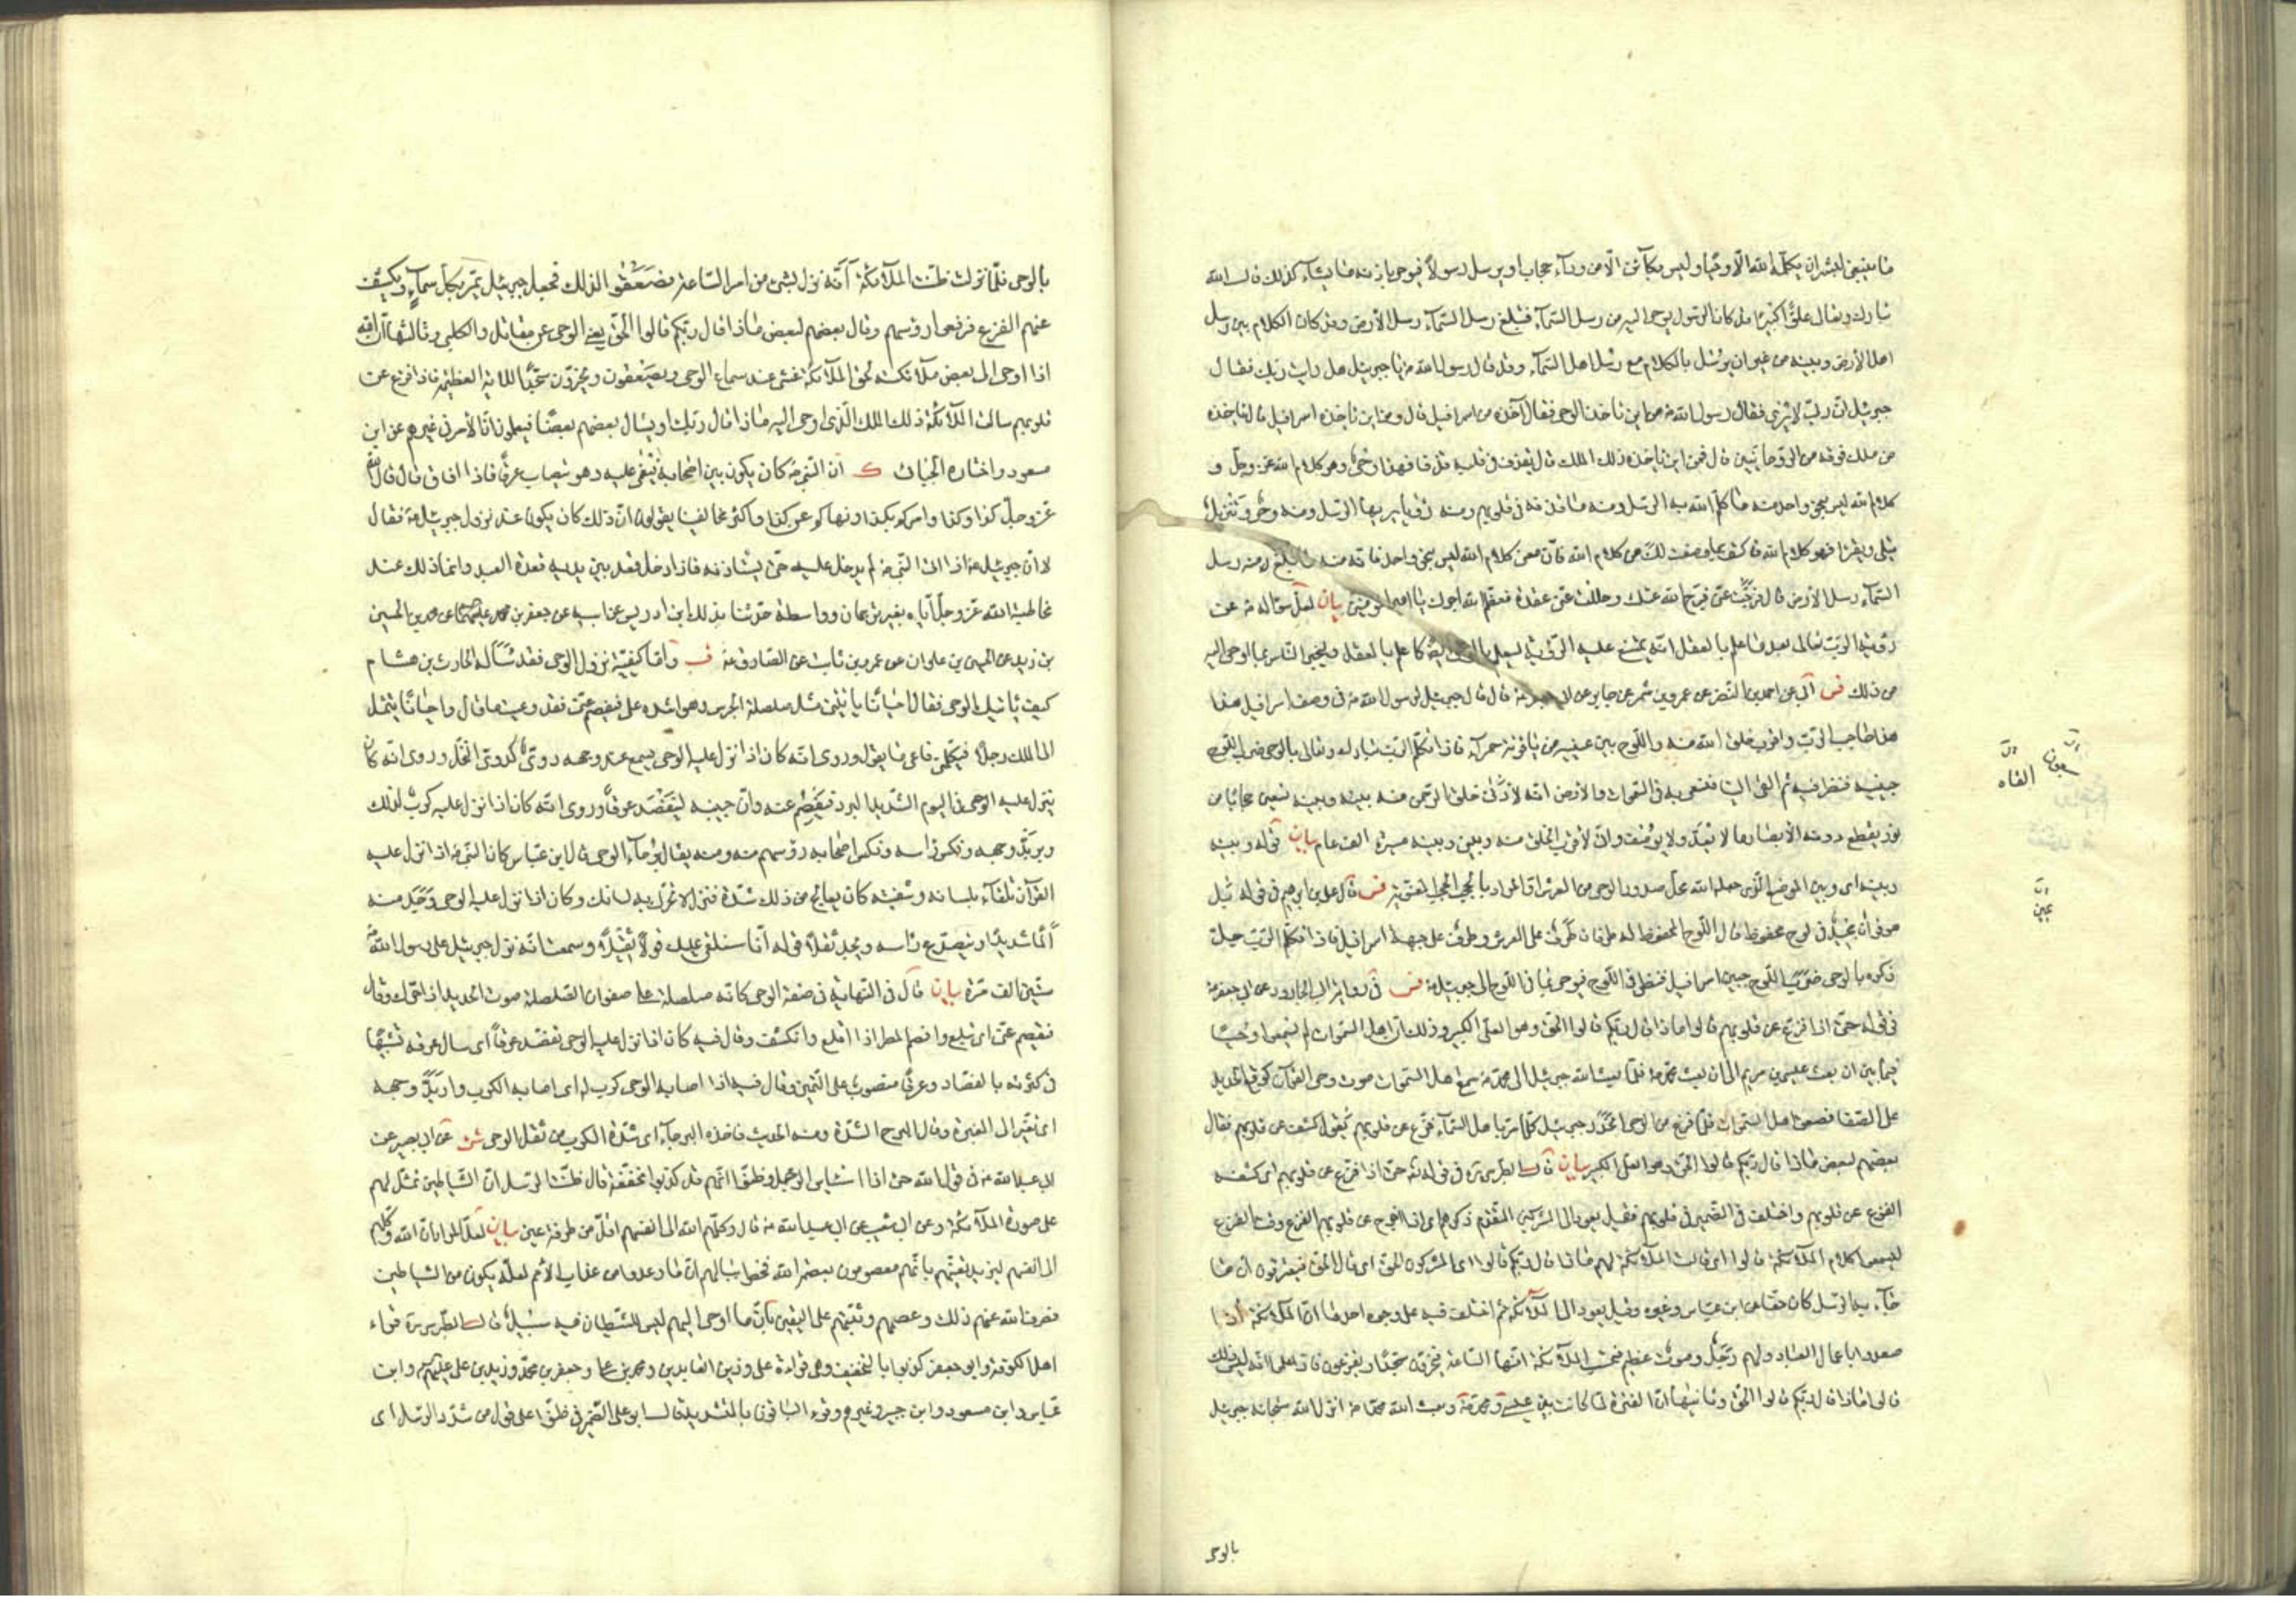 ما ينبغي لبشر ان يكلّمه الله الّا وحيا وليس بكائن الّا من ورآء حجاب او يرسل رسولاً فيوحي باذنه ما يشآء كذلك قال الله
تبارك وتعالى علوًّا كبيرًا قد كان الرسول يوحى اليه من رسل السّمآء فتبلغ رسل السّمآء رسل الأرض وقد كان الكلام بين رسل
اهل الأرض وبينه من غير ان يرسل بالكلام مع رسل اهل السّمآء وقد قال رسول الله ص يا جبرئيل هل رايت ربّك فقال
جبرئيل انّ ربّي لا يُرى فقال رسول الله ص من اين تاخذ الوحي فقال آخذه من اسرافيل قال ومن اين ياخذه اسرافيل قال ياخذه
من ملك فوقه من الرّوحانيّين قال فمن اين ياخذه ذلك الملك قال يقذف في قلبه قذفا فهذا وحيٌ وهو كلام الله عزّ وجلّ و
كلام الله ليس بنحو واحد منه ما كلّم الله به الرسل ومنه ما قذفه في قلوبهم ومنه رؤيا يريها الرّسل ومنه وحي وتنزيلٌ
يتلى ويقرأ فهو كلام الله فاكتف بما وصفت لك من كلام الله فانّ معنى كلام الله ليس بنحو واحد فانّه منه ما تبلّغ منه رسل
السّمآء رسل الأرض قال فرّجت عنّي فرّج الله عنك وحللت عنّي عقدة فعظّم الله اجرك يا امير المؤمنين بيان لعلّ سؤاله ص عن
رؤية الربّ تعالى بعد ما علم بالعقل انّه يمتنع عليه الرّؤية ليعلم بالوحي ايضًا كما علم بالعقل وليخبر الناس بما اوحي اليه
من ذلك فس ابي عن احمد بن النضر عن عمرو بن شمر عن جابر عن ابي جعفر ع قال قال جبرئيل لرسول الله ص في وصف اسرافيل هذا
هذا حاجب الربّ واقرب خلق الله منه واللّوح بين عينيه من ياقوتة حمرآء فاذا تكلّم الربّ تبارك وتعالى بالوحي ضرب اللّوح
جبينه فنظر فيه ثم القى الينا فنسعى به في السّموات والأرض انّه لأدنى خلق الرّحمن منه بينه وبينه تسعين حجابًا من
نور يقطع دونه الأبصار ما لا يُعدّ ولا يوصف وانّي لأقرب الخلق منه وبيني وبينه مسيرة الف عام بيان قوله وبينه
وبينه اى وبين الموضع الّذي جعله الله محلّ صدور الوحي من العرش او المراد بالحجب الحجب المعنويّة فس قال علي بن ابرهيم في قوله بل
هو قرآن مجيد في لوح محفوظ قال اللّوح المحفوظ له طرفان طرفٌ على العرش وطرفٌ على جبهة اسرافيل فاذا تكلّم الربّ جلّ
ذكره بالوحي ضرب اللّوح جبين اسرافيل فنظر في اللّوح فيوحي بما في اللّوح الى جبرئيل ع فس في رواية ابي الجارود عن ابي جعفر ع
في قوله حتّى اذا فزّع عن قلوبهم قالوا ماذا قال ربّكم قالوا الحقّ وهو العليّ الكبير وذلك انّ اهل السّموات لم يسمعوا وحيًا
فيما بين ان بعث عيسى بن مريم الى ان بعث محمّد ص فلمّا بعث الله جبرئيل الى محمّد ص سمع اهل السّموات صوت وحي القرآن كوقع الحديد
على الصّفا فصعق اهل السّموات فلمّا فرغ من الوحي انحدر جبرئيل كلّما مرّ باهل السّمآء فزّع عن قلوبهم يقول كشف عن قلوبهم فقال
بعضهم لبعض ماذا قال ربّكم قالوا الحقّ وهو العليّ الكبير بيان قال الطبرسي ره في قوله تع حتّى اذا فزّع عن قلوبهم اى كشف
الفزع عن قلوبهم واختلف في الضّمير في قلوبهم فقيل يعود الى المشركين المتقدّم ذكرهم اى اذا اخرج عن قلوبهم الفزع وقت الفزع
ليسمعوا كلام الملآئكة قالوا اى قالت الملآئكة لهم ماذا قال ربّكم قالوا اى المشركون الحقّ اى قال الحقّ فيعترفون انّ ما
جآء به الرّسل كان حقّا عن ابن عبّاس وغيره وقيل يعود الى الملآئكة ثم اختلف فيه على وجوه احدها انّ الملآئكة اذا
صعدوا باعمال العباد ولهم زجلٌ وصوتٌ عظيم فتحسب الملآئكة انّها السّاعة فيخرّون سجّدًا ويفزعون فاذا علموا انّه ليس ذلك
قالوا ماذا قال ربّكم قالوا الحقّ وثانيها انّ الفترة لمّا كانت بين عيسى ومحمّد ص وبعث الله محمّدًا ص انزل الله سبحانه جبرئيل
بالوحي
بالوحي فلمّا نزل ظنّت الملآئكة انّه نزل بشئ من امر السّاعة فصعقوا لذلك فجعل جبرئيل يمرّ بكلّ سمآء ويكشف
عنهم الفزع فرفعوا رؤسهم وقال بعضهم لبعض ماذا قال ربّكم قالوا الحقّ يعني الوحي عن مقاتل والكلبي وثالثها انّ الله
اذا اوحى الى بعض ملآئكته لحق الملآئكة غشي عند سماع الوحي ويصعقون ويخرّون سجّدًا للآية العظيمة فاذا فزع عن
قلوبهم سألت الملآئكة ذلك الملك الّذي اوحي اليه ماذا قال ربّك او يسأل بعضهم بعضًا فيعلمون انّ الأمر في غيرهم عن ابن
مسعود واختاره الجبائي ك انّ النّبي ص كان يكون بين اصحابه فيغمى عليه وهو يتصابّ عرقًا فاذا افاق قال قال الله
عزّ وجلّ كذا وكذا وامركم بكذا ونهاكم عن كذا واكثر مخالفينا يقولون انّ ذلك كان يكون عند نزول جبرئيل ع فقال
لا انّ جبرئيل ع اذا اتى النّبي ص لم يدخل عليه حتّى يستاذنه فاذا دخل قعد بين يديه قعدة العبد وانّما ذلك عند
مخاطبة الله عزّ وجلّ ايّاه بغير ترجمان وواسطة حدّثنا بذلك ابن ادريس عن ابيه عن جعفر بن محمد عن محمد بن الحسين
بن زيد عن الحسين بن علوان عن عمرو بن ثابت عن الصّادق ع قب وأمّا كيفيّة نزول الوحي فقد سأله الحارث بن هشام
كيف ياتيك الوحي فقال احيانًا ياتيني مثل صلصلة الجرس وهو اشدّه علي فيفصم عنّي فقد وعيت ما قال واحيانًا يتمثّل
الى الملك رجلاً فيكلّمني فاعي ما يقول وروي انّه كان اذا نزل عليه الوحي يسمع عند وجهه دويّ كدويّ النّحل وروي انّه كان
ينزل عليه الوحي في اليوم الشّديد البرد فيفصم عنه وانّ جبينه ليتفصّد عرقًا وروي انّه كان اذا نزل عليه كرب لذلك
ويربدّ وجهه ونكس رأسه ونكس اصحابه رؤسهم منه ومنه يقال برحآء الوحي قال ابن عبّاس كان النّبي ص اذا نزل عليه
القرآن تلقّاه بلسانه وشفتيه كان يعالج من ذلك شدّة فنزل لا تحرّك به لسانك وكان اذا نزل عليه الوحي وجد منه
ألمًا شديدًا ويتصدّع رأسه ويجد ثقلاً قوله انّا سنلقي عليك قولاً ثقيلاً وسمعت انّه نزل جبرئيل على رسول الله ص
ستّين الف مرّة بيان قال في النّهاية في صفة الوحي كانّه صلصلة على صفوان الصّلصلة صوت الحديد اذا حرّك وقال
فيفصم عنّي اى يقلع وافصم المطر اذا اقلع وانكشف وقال فيه كان اذا نزل عليه الوحي تفصّد عرقًا اى سال عرقه تشبيهًا
في كثرته بالفصاد وعرقًا منصوب على التّمييز وقال فيه اذا اصابه الوحي كرب له اى اصابه الكرب واربدّ وجهه
اى تغيّر الى الغبرة وقال البرح الشّدّة ومنه الحديث فاخذه البرحآء اى شدّة الكرب من ثقل الوحي شى عن ابي بصير عن
ابي عبد الله ع في قول الله حتى اذا استيأس الرّسل وظنّوا انّهم قد كذبوا مخفّفة قال ظنّت الرّسل انّ الشّياطين تمثّل لهم
على صورة الملآئكة وعن ابي شعيب عن ابي عبد الله ع قال وكلهم الله الى انفسهم اقلّ من طرفة عين بيان لعلّ المراد انّ الله وكلهم
الى انفسهم ليزيد يقينهم بانّهم معصومون بعصمة الله فخطر ببالهم انّ ما وعدوا من عذاب الأمم لعلّه يكون من الشّياطين
فصرف الله عنهم ذلك وعصمهم وثبّتهم على اليقين بانّ ما اوحي اليهم ليس للشّيطان فيه سبيل قال الطّبرسي ره قرأ
اهل الكوفة وابو جعفر كذبوا بالتخفيف وهي قراءة علي وزين العابدين ومحمد بن علي وجعفر بن محمّد وزيد بن علي وابن
عبّاس وابن مسعود وابن جبير وغيرهم وقرأ الباقون بالتشديد قال ابو علي الضّمير في ظنّوا على قول من شدّد الرّسل اى